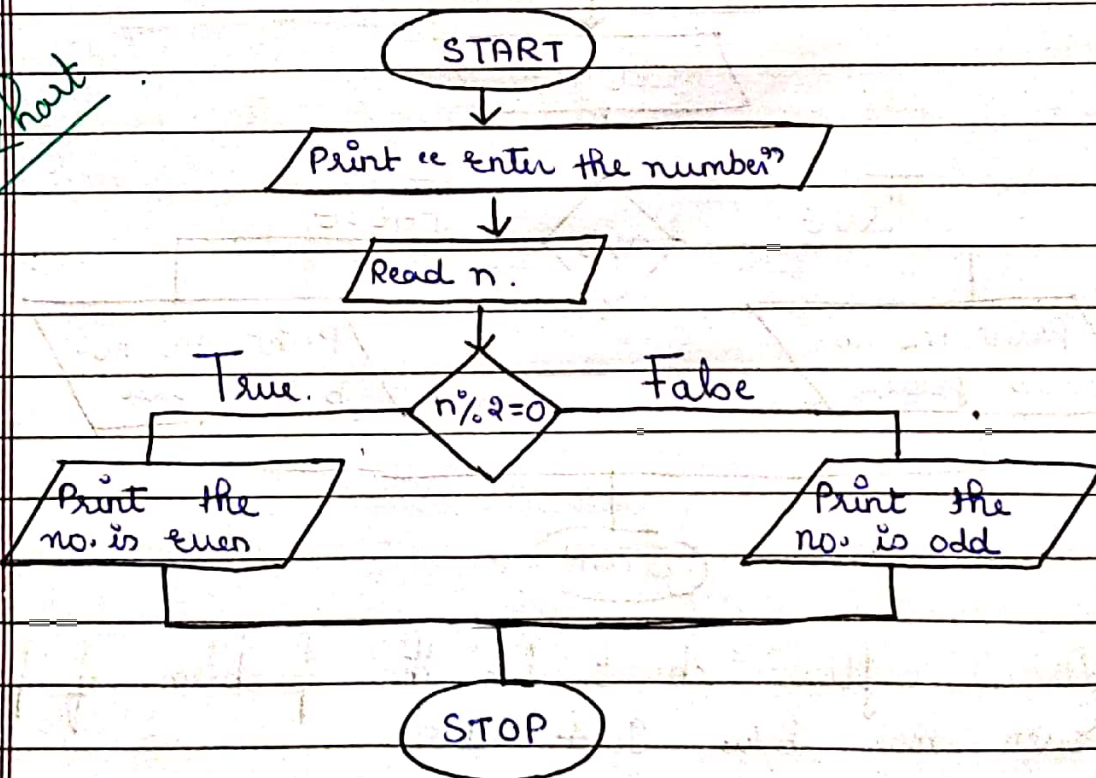 Chart
START
Print “ Enter the number”
Read n.
True.
n%2=0
False
Print the
no. is Even
Print the
no. is odd
STOP